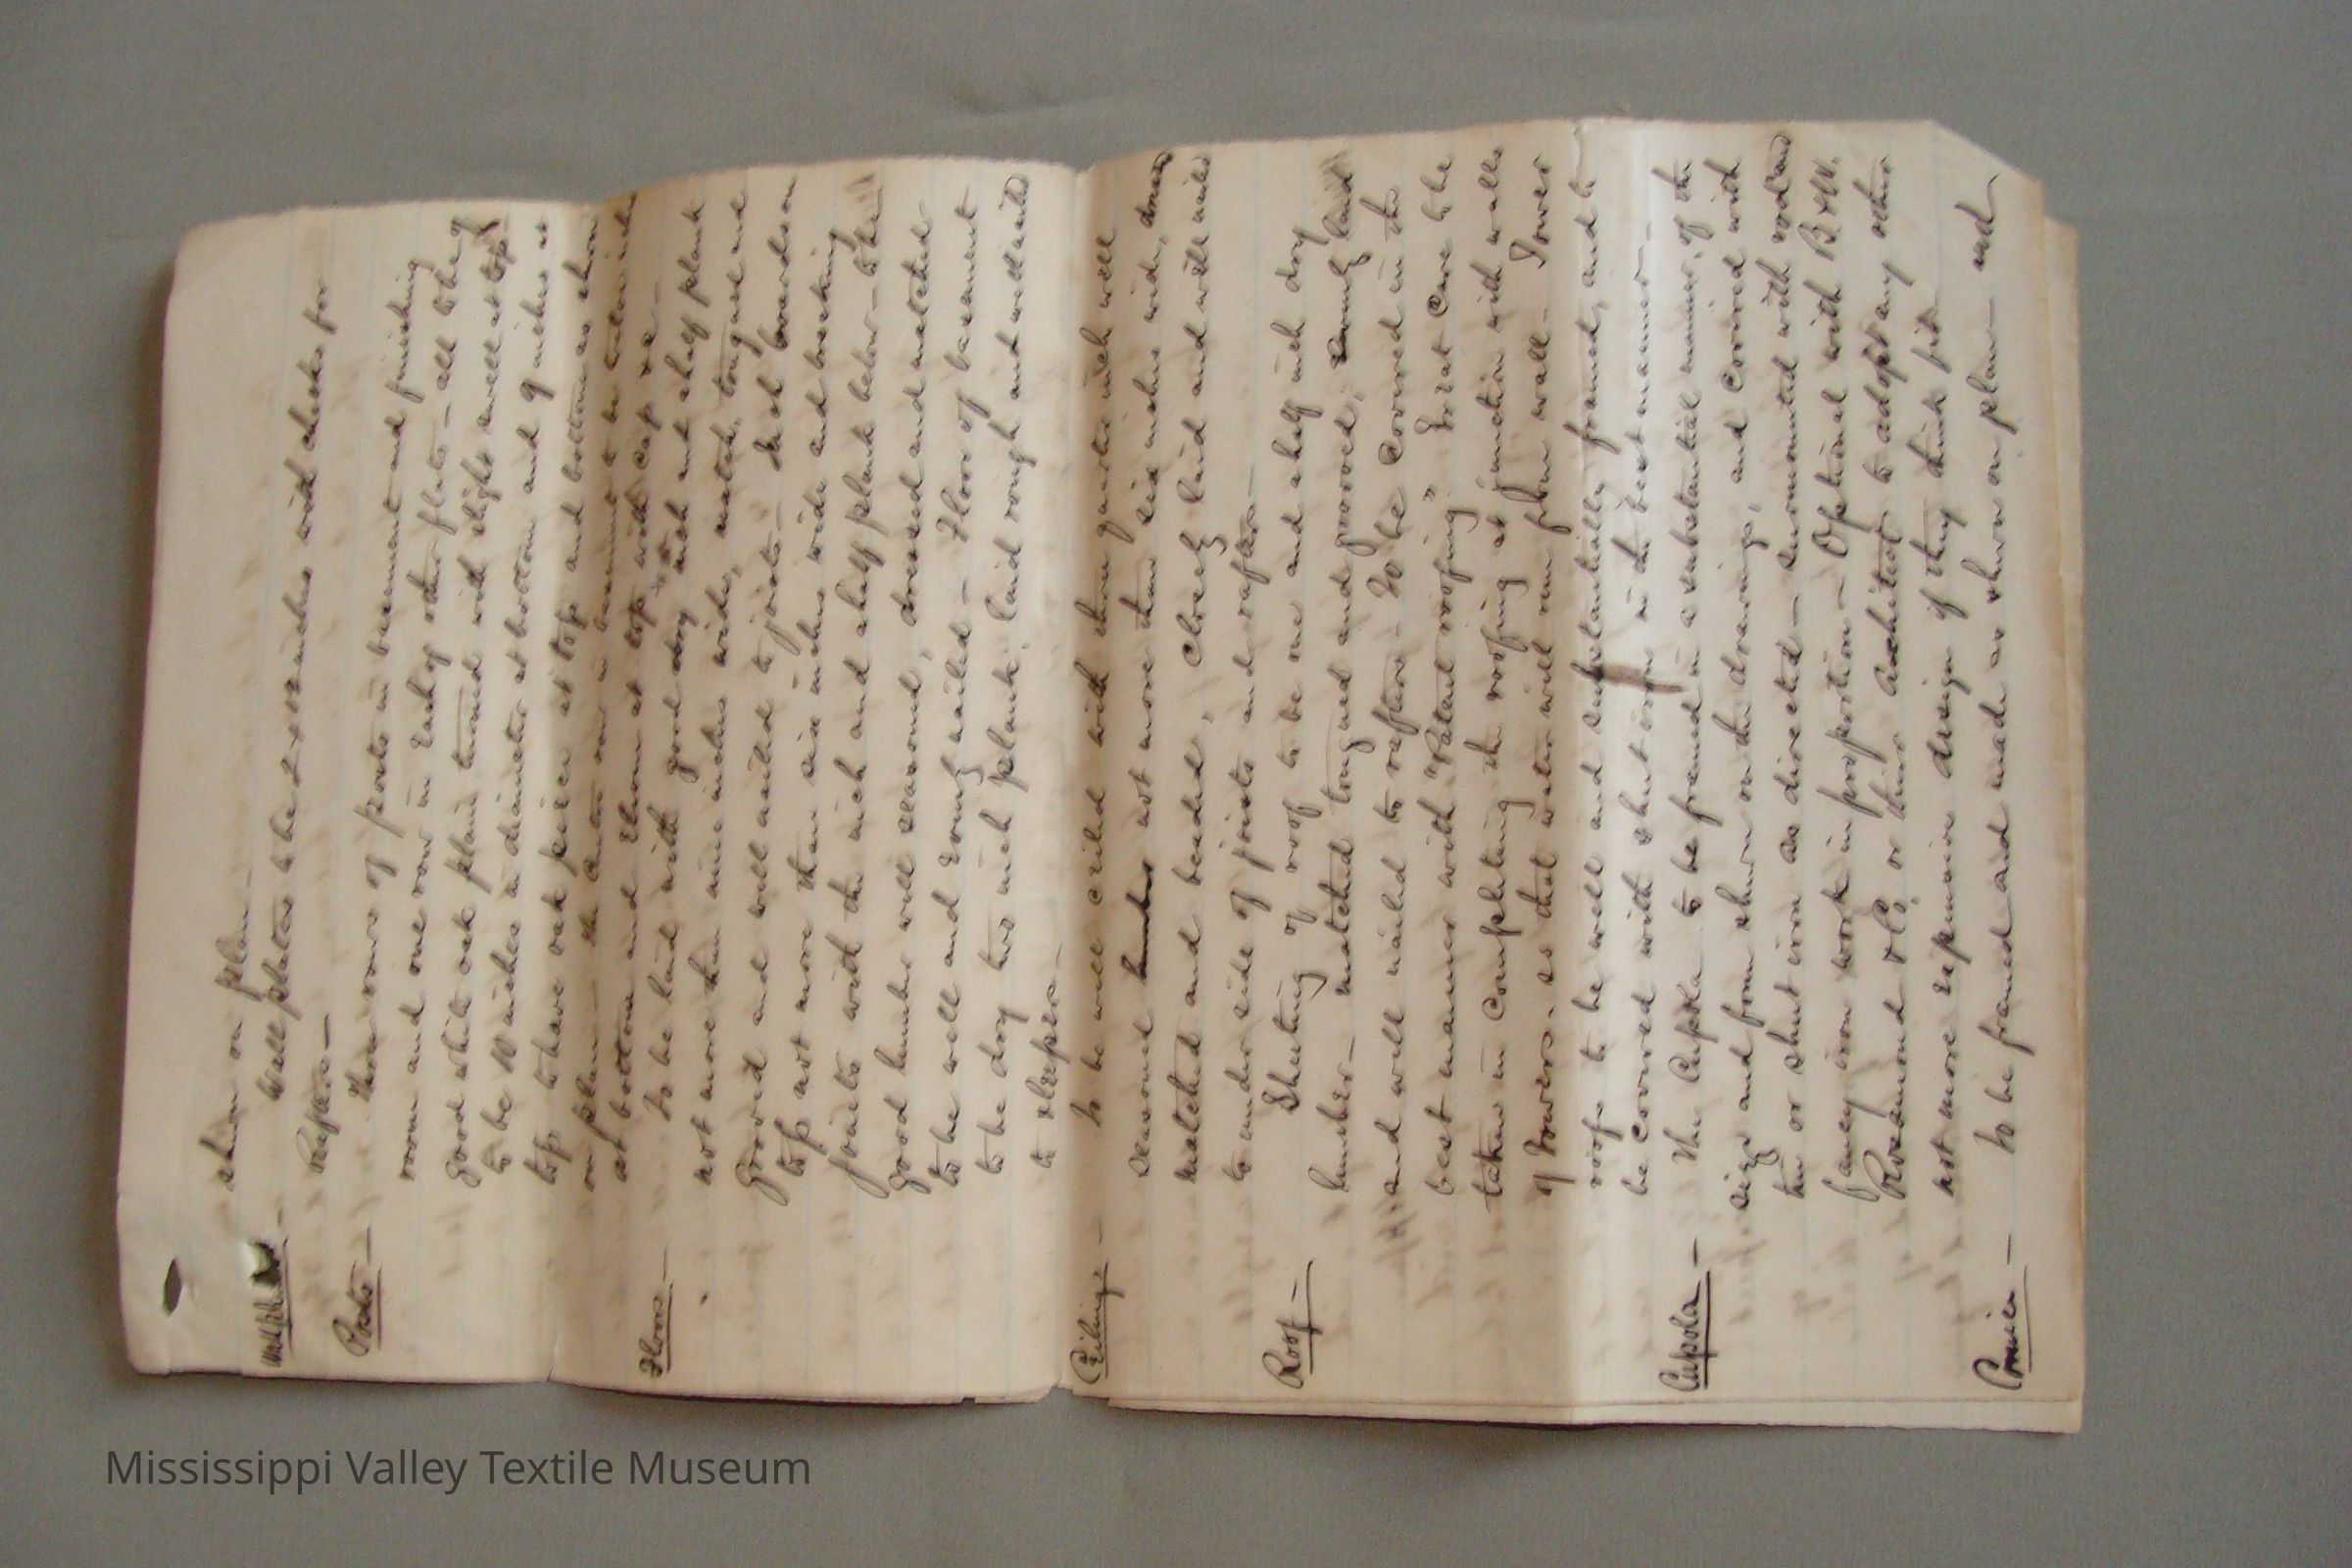 shown on plan—
Wall plates— Wall plates to be 2 x 12 inches with checks for
Rafters—
Posts— Three rows of posts in basement and finishing
room and one row in each of other flats— all to be of
good white oak plain turned with slight swell at top
to be 10 inches in diameter at bottom and 9 inches at
top to have oak peice at top and bottom as shown
on plan— the center row in basement to be
at bottom and at top with cap &c—
Floors— To be laid with good dry inch and a half plank
not more than nine inches wide, match, tongued and
grooved and well nailed to joists— Inch boards on
top not more than six inches wide and breaking
joints with the inch and a half plank below— to be
good lumber well seasoned, dressed and matched
to be well and evenly nailed— Floor of basement
to be dry two inch plank, laid rough and well nailed
to sleepers—
Ceilings— To be well ceiled with three quarter inch well
seasoned lumber not more than six inches wide, dressed
matched and beaded, closely laid and well nailed
to under side of joists and rafters—
Roof— Sheeting of roof to be one and a half inch dry
lumber— matched tongued and grooved, evenly laid
and well nailed to rafters— To be covered in the
best manner with "Patent roofing" Great care to be
taken in completing the roofing at junction with walls
of Towers. so that water will run from wall— Tower
roofs to be well and substantially framed, and to
be covered with sheet iron in the best manner—
Cupola— The Cupola to be framed in a substantial manner, of the
size and form shown on the drawings, and covered with
tin or sheet iron as directed— surmounted with rod and
fancy iron work in proportion— Optional with B. & W.
Rosamond & Co, or their Architect to adopt any other
not more expensive design if they think fit
Cornice— To be framed and made as shown on plan— and
Mississippi Valley Textile Museum